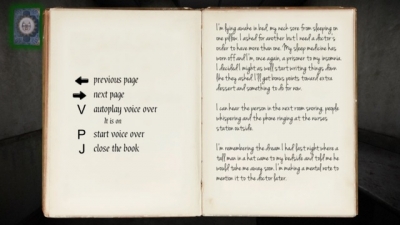 previous page
next page
V autoplay voice over
It is on
P start voice over
J close the book
I'm lying awake in bed, my neck sore from sleeping on
one pillow. I asked for another but I need a doctor's
order to have more than one. My sleep medicine has
worn off and I'm, once again, a prisoner to my insomnia.
I decided I might as well start writing things down
like they asked. I'll get bonus points toward extra
dessert and something to do for now.
I can hear the person in the next room snoring, people
whispering and the phone ringing at the nurses
station outside.
I'm remembering the dream I had last night where a
tall man in a hat came to my bedside and told me he
would take me away soon. I'm making a mental note to
mention it to the doctor later.